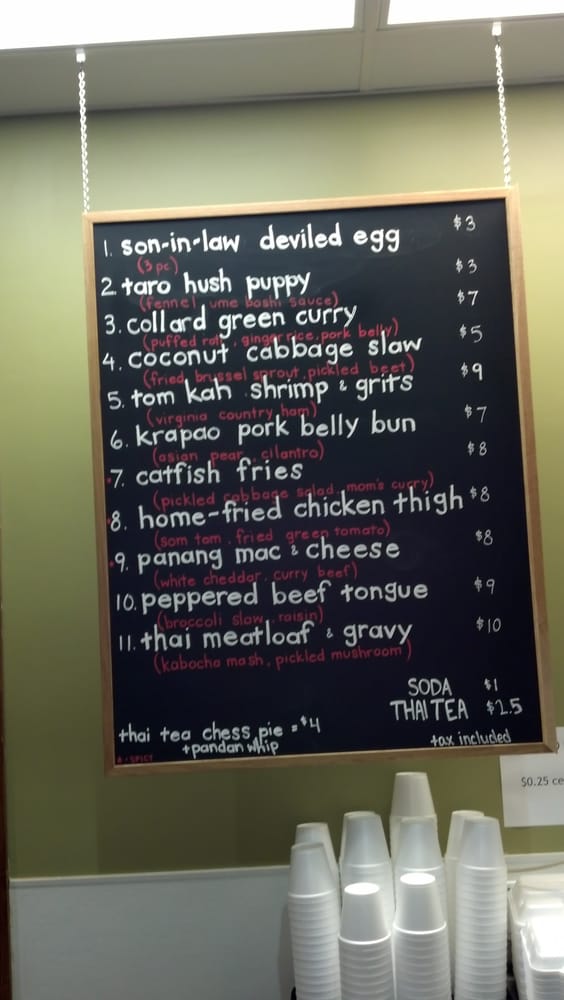 1. son-in-law deviled egg $3
(3 pc)
2. taro hush puppy $3
(fennel, ume boshi sauce)
3. collard green curry $7
(puffed roti, ginger rice, pork belly)
4. coconut cabbage slaw $5
(fried brussel sprout, pickled beet)
5. tom kah shrimp & grits $9
(virginia country ham)
6. krapao pork belly bun $7
(asian pear, cilantro)
7. catfish fries $8
(pickled cabbage salad, mom's curry)
8. home-fried chicken thigh $8
(som tom, fried green tomato)
9. panang mac & cheese $8
(white cheddar, curry beef)
10. peppered beef tongue $9
(broccoli slaw, raisin)
11. thai meatloaf & gravy $10
(kabocha mash, pickled mushroom)
SODA $1
THAI TEA $2.5
tax included
thai tea chess pie = $4
+pandan whip
* = SPICY
$0.25 ce